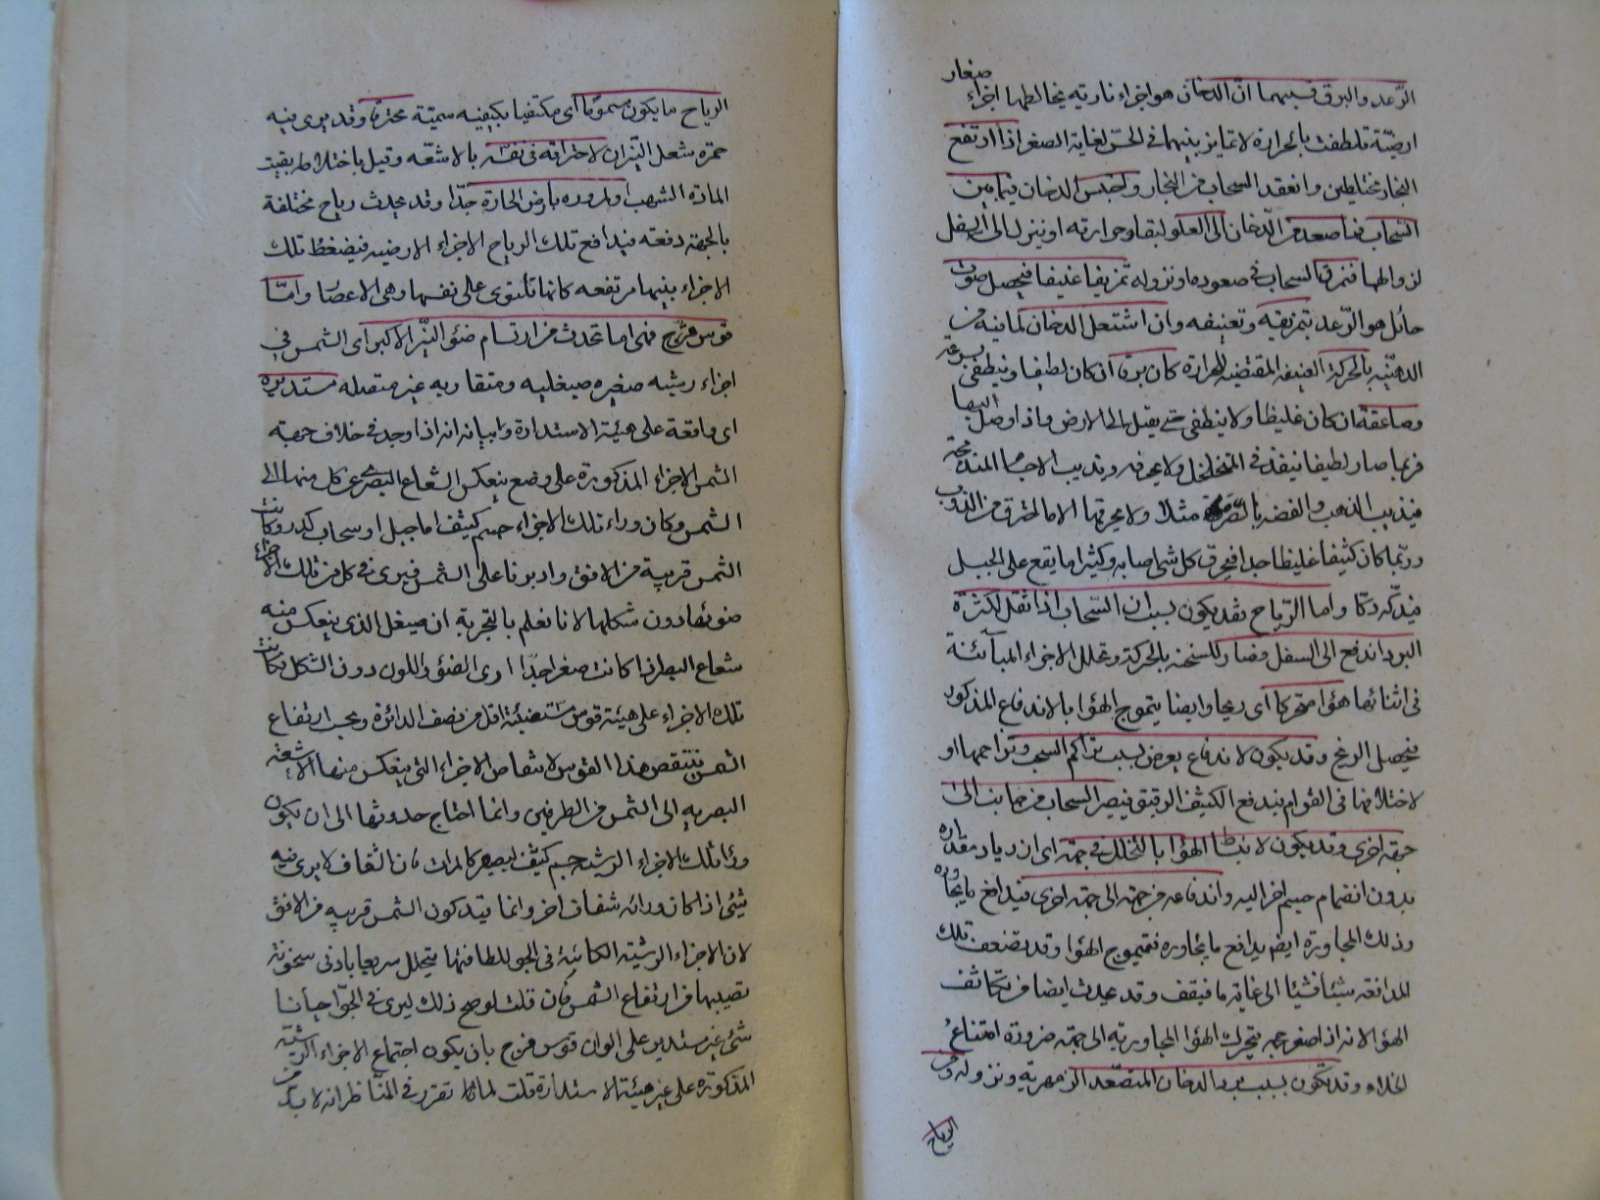 الرعد والبرق فسببهما ان الدخان هو اجزاء نارية يخالطها اجزاء صغار
ارضية تلطفت بالحرارة لا تمايز بينهما في الحس لغاية الصغر اذا ارتفع
البخار مختلطين وانعقد السحاب من البخار واحتبس الدخان فيما بين
السحاب فما صعد من الدخان الى العلو لبقاء حرارته او نزل الى السفل
لزوالها فمزق السحاب في صعوده او نزوله تمزيقا عنيفا فيحصل صوت
هائل هو الرعد بتمزيقه وتعنيفه وان اشتعل الدخان لما فيه من
الدهنية بالحركة العنيفة المقتضية للحرارة كان برقا ان كان لطيفا وينطفي بسرعة
وصاعقة ان كان غليظا ولا ينطفي حتى يصل الى الارض واذا وصل اليها
فربما صار لطيفا ينفذ في المتخلخل ولا يحرقه ويذيب الاجسام المندمجة
فيذيب الذهب والفضة بالصرة مثلا ولا يحرقها الا ما احترق من الذوب
وربما كان كثيفا غليظا جدا فيحرق كل شئ اصابه وكثيرا ما يقع على الجبل
فيدكه دكا واما الرياح فقد يكون بسبب ان السحاب اذا ثقل لكثرة
البرد اندفع الى السفل فصار لتسخنه بالحركة وتخلل الاجزاء المائية
في اثنائها هواء متحركا اى ريحا وايضا يتموج الهواء بالاندفاع المذكور
فيحصل الريح وقد يكون لاندفاع يعرض بسبب تراكم السحب وتزاحمها او
لاختلافها في القوام فيدفع الكثيف الرقيق فيصير السحاب من جانب الى
جهة اخرى وقد يكون لانبساط الهواء بالتخلخل في جهة اى ازدياد مقداره
بدون انضمام جسم اخر اليه واندفاعه من جهة الى جهة اخرى فيدافع ما يجاوره
وذلك المجاورة ايضا يدافع ما يجاوره فيتموج الهواء وقد تضعف تلك
المدافعة شيئا فشيئا الى غاية ما فيقف وقد يحدث ايضا من تكاثف
الهواء لانه اذا صغر حجمه يتحرك الهواء المجاور به الى جهته ضرورة امتناع
الخلاء وقد تكون بسبب برد الدخان المتصعد الى الزمهرية ونزوله ومن
الرياح
الرياح ما يكون سموما اى متكيفا بكيفية سمية محترقا وقد يرى فيه
حمرة شعل النيران لاحتراقه في نفسه بالاشعة وقيل باختلاط بقية
المادة الشهب او لمروره بارض الحارة جدا وقد يحدث رياح مختلفة
بالجهة دفعة فيدافع تلك الرياح الاجزاء الارضية فيضغط تلك
الاجزاء بينها مرتفعة كانها تلتوى على نفسها وهي الاعصار واما
قوس قزح فهى اما تحدث من ارتسام ضوء النير الاكبر اى الشمس في
اجزاء رشية صغيره صيقلية ومتقاربه غير متصله مستديرة
اى واقعة على هيئة الاستدارة وبيانه انه اذا وجد في خلاف جهة
الشمس الاجزاء المذكورة على وضع ينعكس الشعاع البصرى عن كل منها الى
الشمس وكان وراء تلك الاجزاء جسم كثيف اما جبل او سحاب كدر وكانت
الشمس قريبة من الافق وادبرنا على الشمس فيرى في كل من تلك الاجزاء
ضوئها دون شكلها لانا نعلم بالتجربة ان صيقل الذى ينعكس منه
شعاع البصر اذا كانت صغر جدا ارى الضوء واللون دون الشكل فكانت
تلك الاجزاء على هيئة قوس مستضيئة اقل من نصف الدائرة وبحسب ارتفاع
الشمس ينتقص هذا القوس لانتقاص الاجزاء التى ينعكس منها الاشعة
البصرية الى الشمس من الطرفين وانما احتاج حدوثها الى ان يكون
وراء تلك الاجزاء الرشية جسم كثيف ليصير كالمرات فان الشفاف لا يرى فيه
شئ اذا كان ورائه شفاف اخر وانما قيد كون الشمس قريبه من الافق
لان الاجزاء الرشية الكائنة في الجو للطافتها يتحلل سريعا بادنى سخونة
تصيبها من ارتفاع الشمس فان قلت لو صح ذلك ليرى في الجو احيانا
شئ غير مستدير على الوان قوس قزح بان يكون اجتماع الاجزاء الرشية
المذكورة على غير هيئة الاستدارة قلت لما تقرر في المناظر انه لا بد من